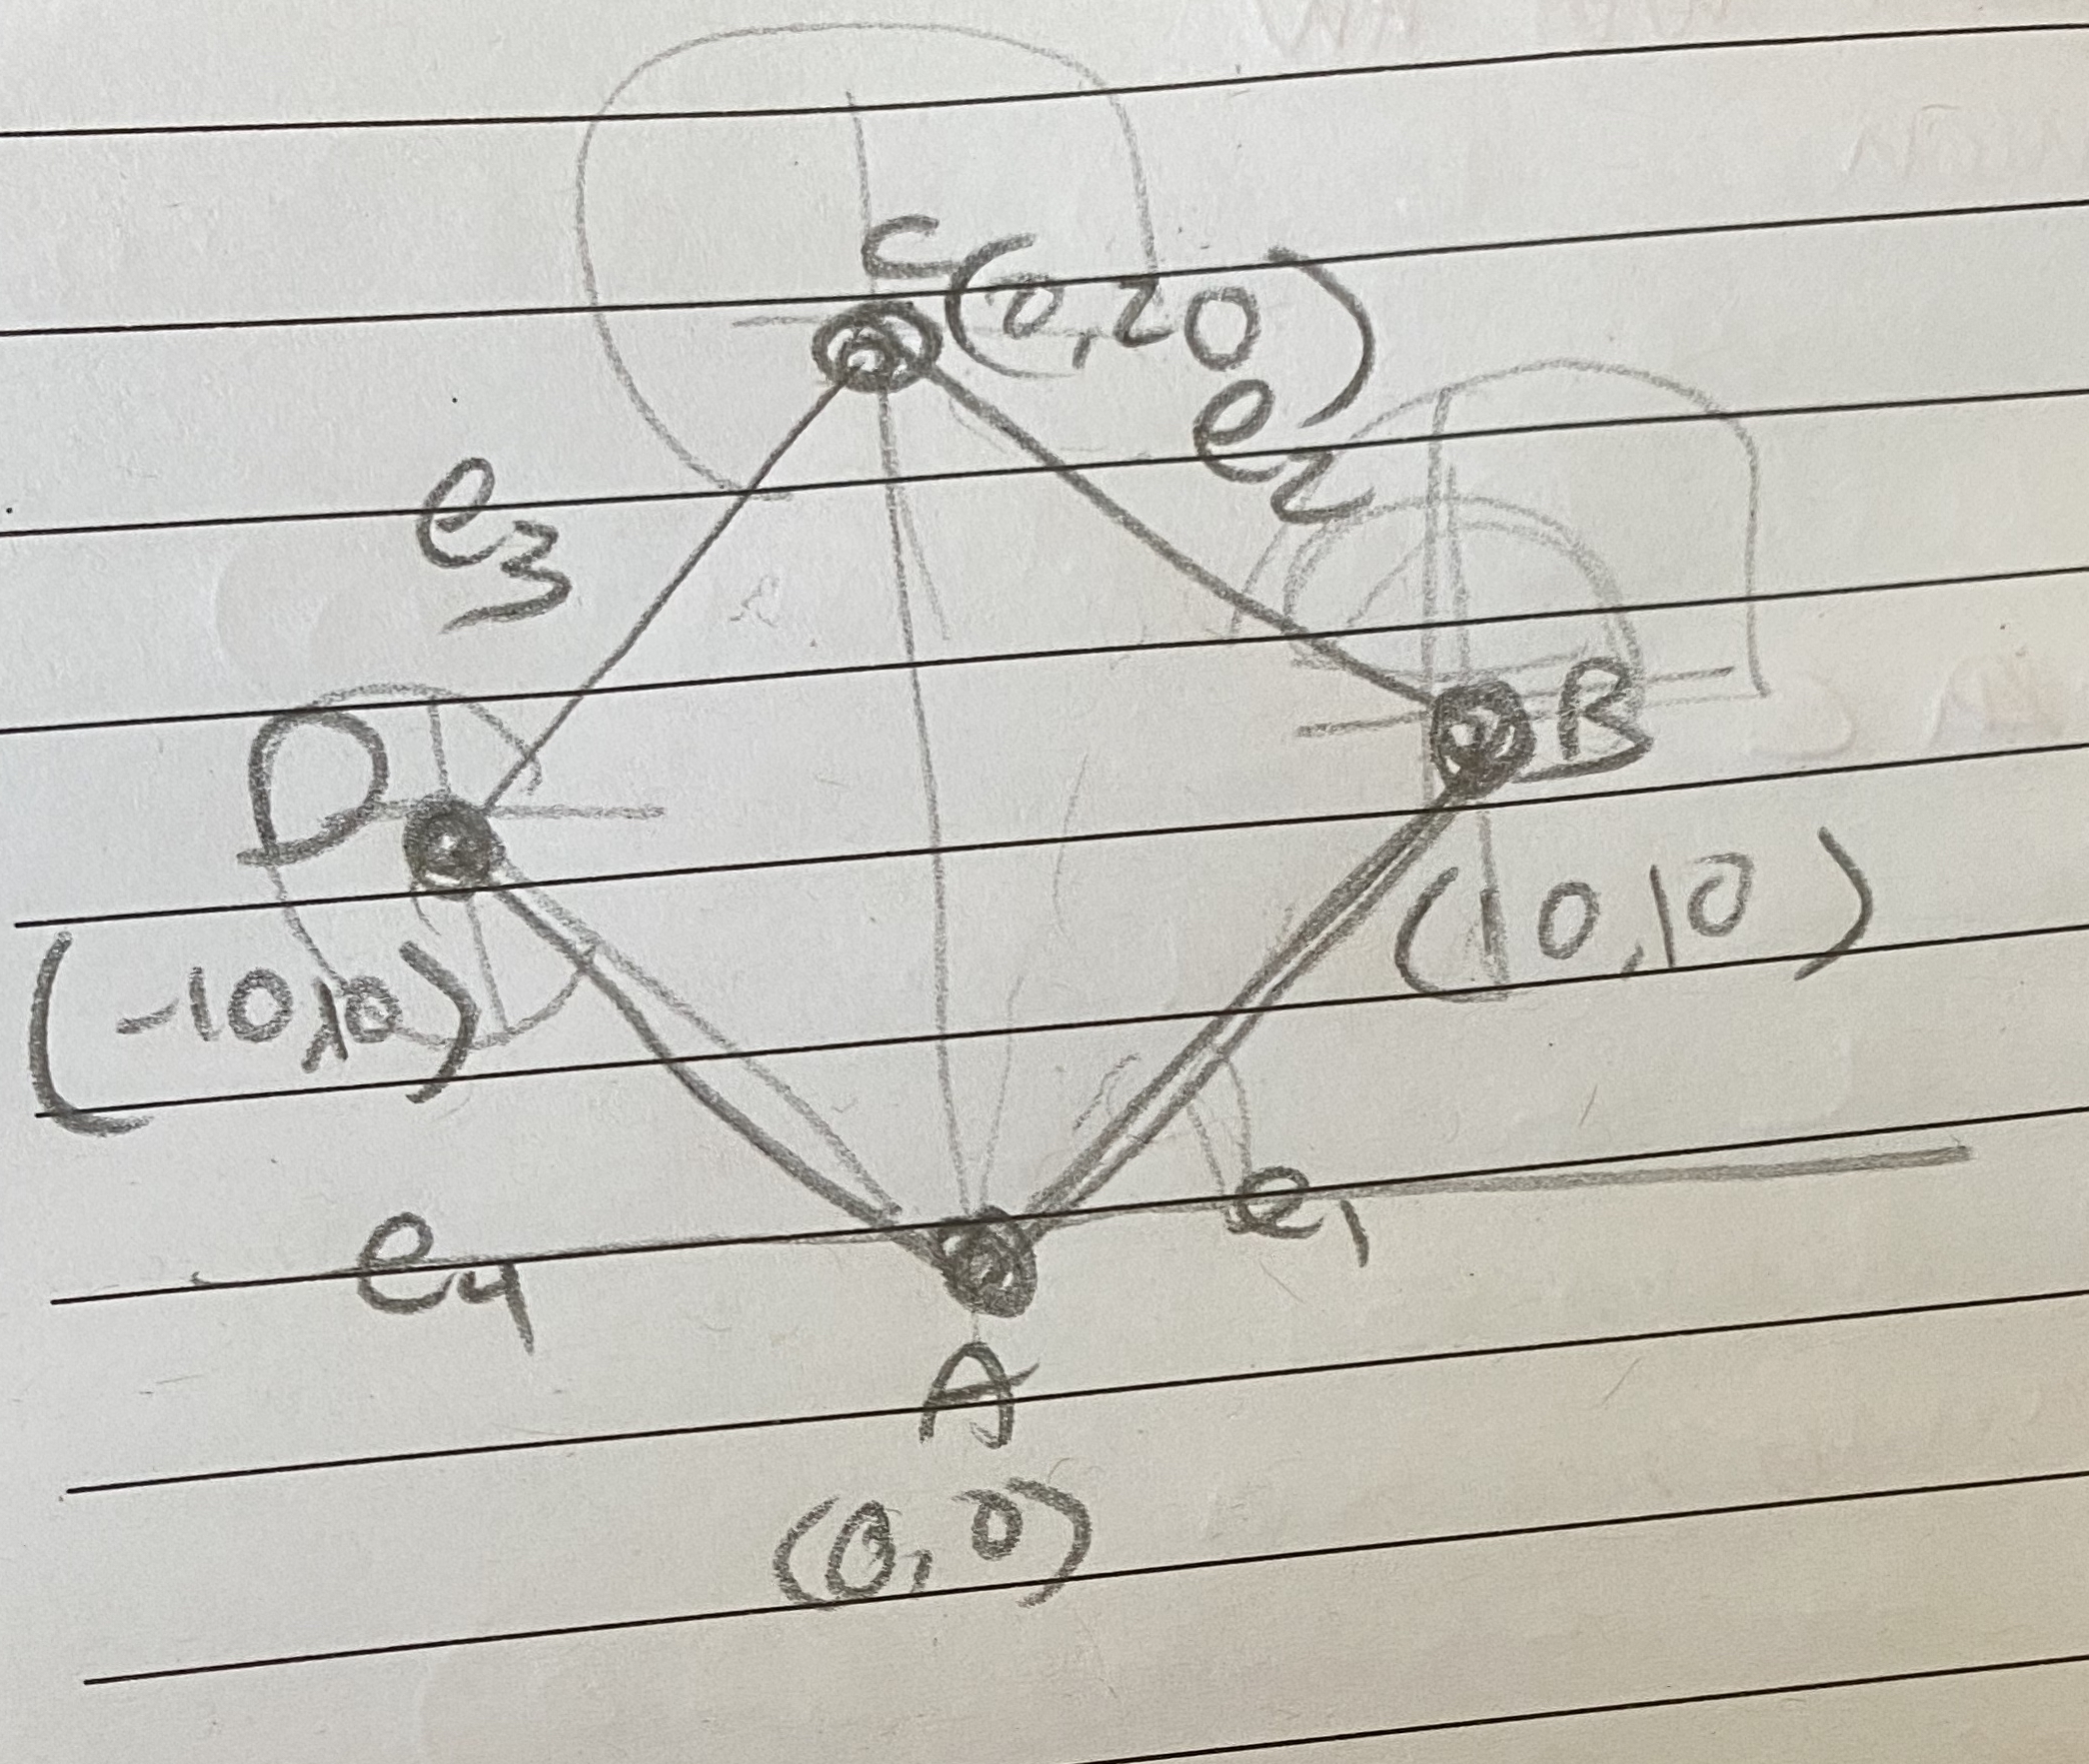 C (0,20)
e2
e3
D
B
(10,10)
(-10,10)
e1
e4
A
(0,0)